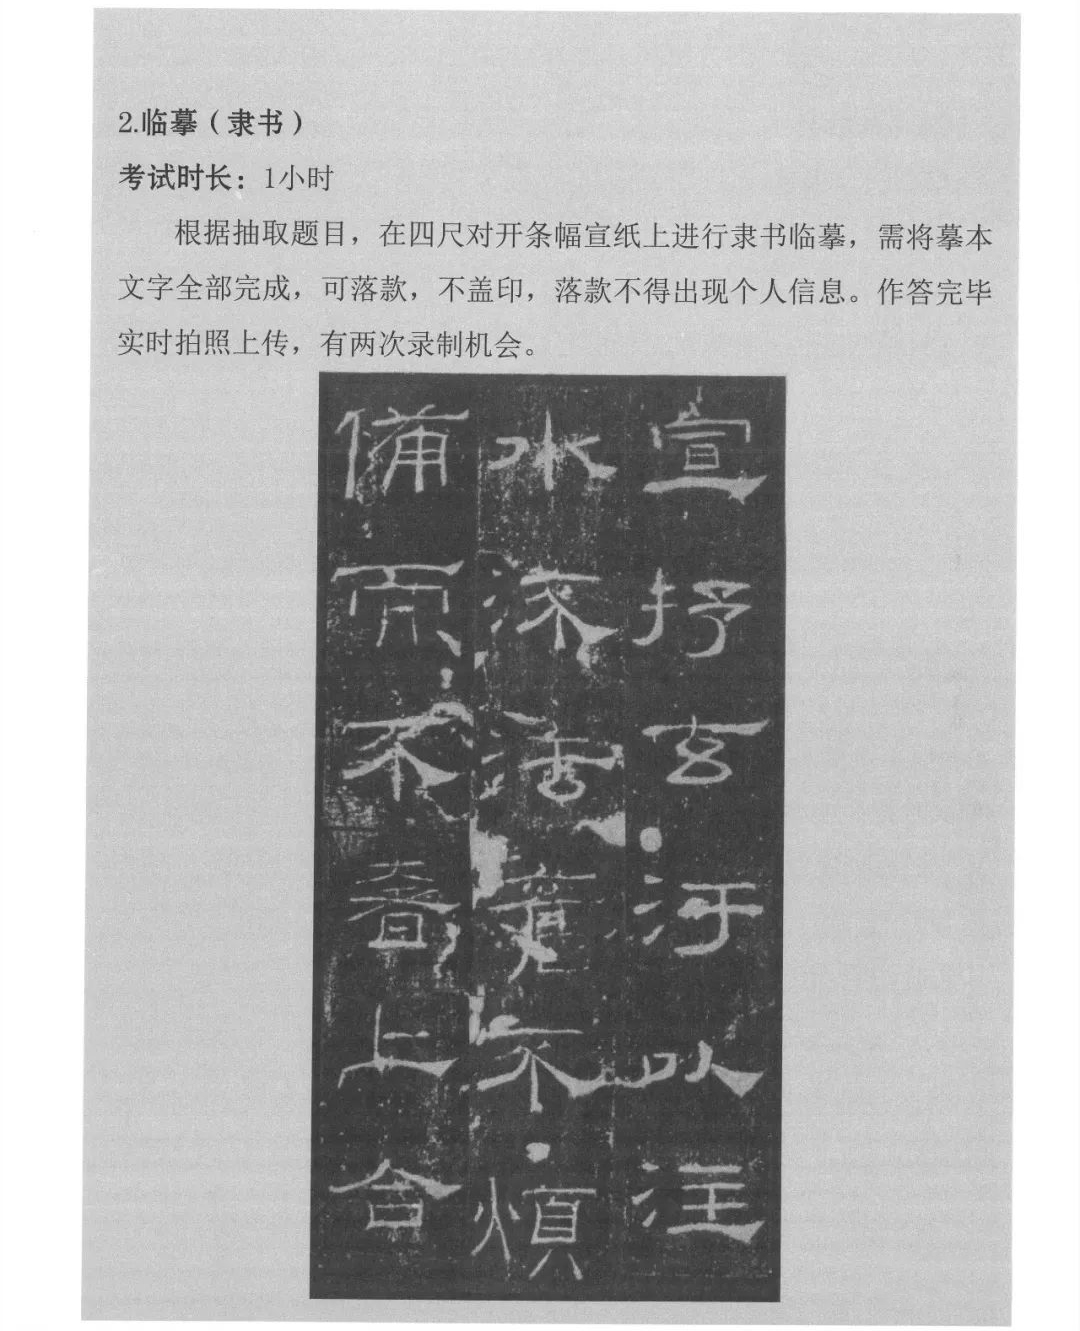 2.临摹（隶书）
考试时长：1小时
根据抽取题目，在四尺对开条幅宣纸上进行隶书临摹，需将摹本
文字全部完成，可落款，不盖印，落款不得出现个人信息。作答完毕
实时拍照上传，有两次录制机会。
宣抒玄汙以注
水流法舊不煩
備而不奢上合